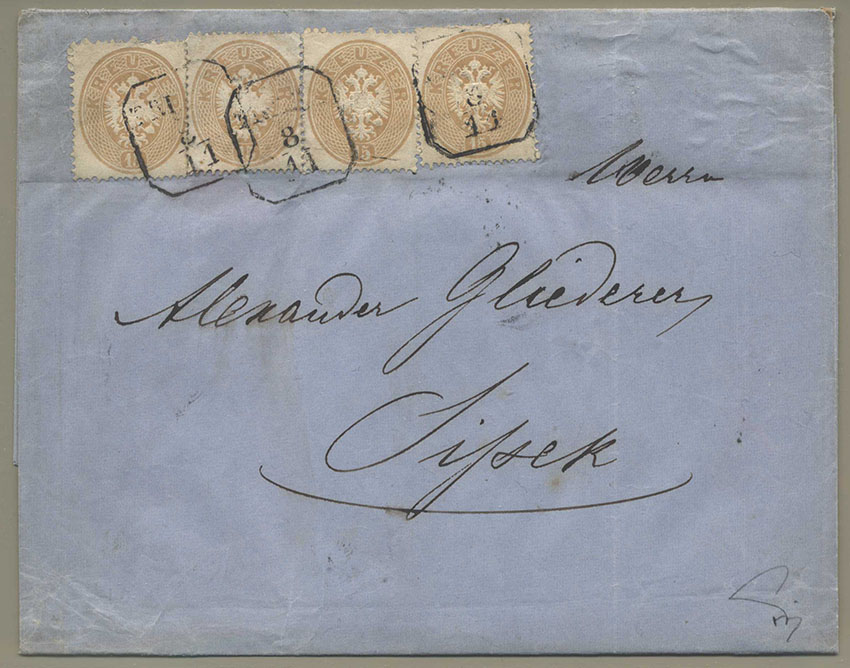 KREUZER KREUZER KREUZER KREUZER
8
11
8
11
8
11
Herrn
Alexander Gliederer
Sissek